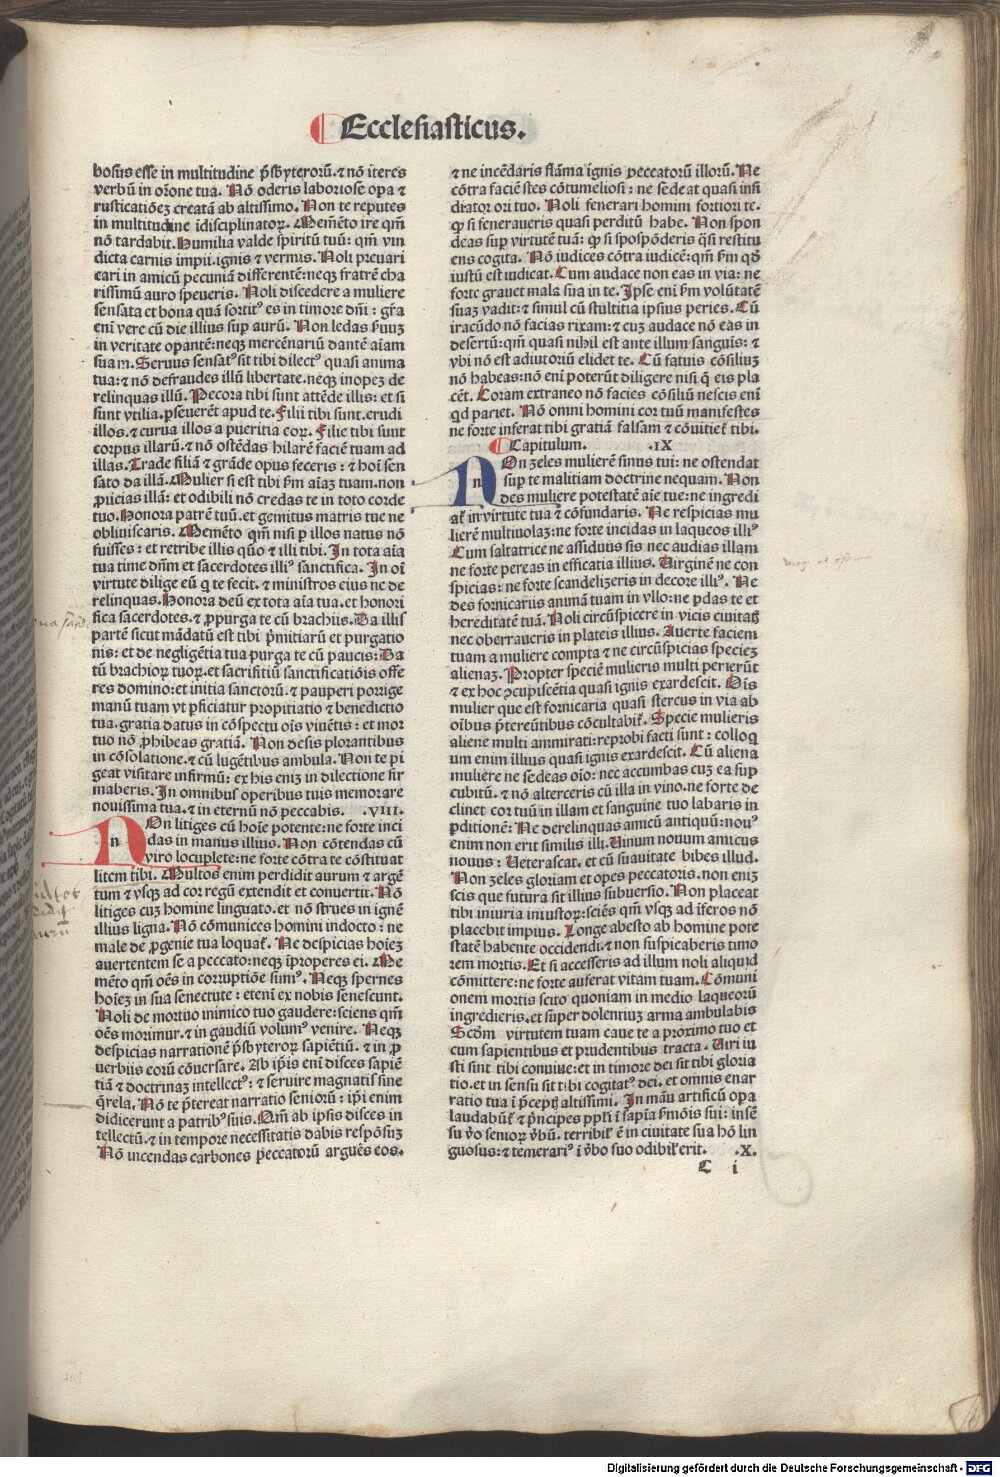 Ecclesiasticus.
bosus esse in multitudine p̄sbyterorū. ⁊ nō iteres
verbū in or̄one tua. Nō oderis laboriose opa ⁊
rusticatiōeʒ creatā ab altissimo. Non te reputes
in multitudine īdisciplinatoꝝ. Memēto ire qm̄
nō tardabit. Humilia valde spiritū tuū: qm̄ vin
dicta carnis impii. ignis ⁊ vermis. Noli p̄euari
cari in amicū pecuniā differentē: neqꝫ fratrē cha
rissimū auro speueris. Noli discedere a muliere
sensata et bona quā sortitꝰ es in timore dn̄i: gr̄a
enī vere cū die illius sup aurū. Non ledas ẜuuʒ
in veritate opantē: neqꝫ mercēnariū dantē aīam
suam. Seruus sensatꝰ sit tibi dilectꝰ quasi anima
tua: ⁊ nō defraudes illū libertate. neqꝫ inopeʒ de
relinquas illū. Pecora tibi sunt attēde illis: et si
sunt vtilia. pseuerēt apud te. Filii tibi sunt. erudi
illos. ⁊ curua illos a pueritia eoꝝ. Filie tibi sunt
corpus illarū. ⁊ nō ostēdas hilarē faciē tuam ad
illas. Trade filiā ⁊ grāde opus feceris: ⁊ hoī sen
sato da illā. Mulier si est tibi ẜm aīaʒ tuam. non
ꝓiicias illā: et odibili nō credas te in toto corde
tuo. Honora patrē tuū. et gemitus matris tue ne
obliuiscaris. Memēto qm̄ nisi p illos natus nō
fuisses: et retribe illis qūo ⁊ illi tibi. In tota aīa
tua time dn̄m et sacerdotes illiꝰ sanctifica. In oī
virtute dilige eū q te fecit. ⁊ ministros eius ne de
relinquas. Honora deū ex tota aīa tua. et honori
fica sacerdotes. ⁊ ꝓpurga te cū brachiis. Da illis
partē sicut mādatū est tibi p̄mitiarū et purgatio
nis: et de negligētia tua purga te cū paucis: Da
tū brachioꝝ tuoꝝ. et sacrifitiū sanctificatiōis offe
res domino: et initia sanctorū. ⁊ pauperi porrige
manū tuam vt pficiatur propitiatio ⁊ benedictio
tua. gratia datus in cōspectu oīs viuētis: et mor
tuo nō ꝓhibeas gratiā. Non desis plorantibus
in cōsolatione. ⁊ cū lugētibus ambula. Non te pi
geat visitare infirmū: ex his eniʒ in dilectione fir
maberis. In omnibus operibus tuis memorare
nouissima tua. ⁊ in eternū nō peccabis. .VIII.
NOn litiges cū hoīe potente: ne forte inci
das in manus illius. Non cōtendas cū
viro locuplete: ne forte cōtra te cōstituat
litem tibi. Multos enim perdidit aurum ⁊ argē
tum ⁊ vsqꝫ ad cor regū extendit et conuertit. Nō
litiges cuʒ homine linguato. et nō strues in ignē
illius ligna. Nō cōmunices homini indocto: ne
male de ꝓgenie tua loquaꝉ. Ne despicias hoīeʒ
auertentem se a peccato: neqꝫ īproperes ei. Me
mēto qm̄ oēs in corruptiōe sumꝰ. Neqꝫ spernes
hoīeʒ in sua senectute: etenī ex nobis senescunt.
Noli de mortuo inimico tuo gaudere: sciens qm̄
oēs morimur. ⁊ in gaudiū volumꝰ venire. Neqꝫ
despicias narrationē p̄sbyteroꝝ sapiētiū. ⁊ in ꝓ
uerbiis eorū cōuersare. Ab ip̄is enī disces sapiē
tiā ⁊ doctrinaʒ intellectꝰ: ⁊ seruire magnatis sine
q̄rela. Nō te p̄tereat narratio seniorū: ip̄i enim
didicerunt a patribꝰ suis. Qm̄ ab ipsis disces in
tellectū. ⁊ in tempore necessitatis dabis respōsuʒ
Nō incendas carbones peccatorū arguēs eos.
⁊ ne incēdaris flāma ignis peccatorū illorū. Ne
cōtra faciē stes cōtumeliosi: ne sedeat quasi insi
diator ori tuo. Noli fenerari homini fortiori te.
ꝙ si feneraueris quasi perditū habe. Non spon
deas sup virtutē tuā: ꝙ si spospōderis q̄si restitu
ens cogita. Nō iudices cōtra iudicē: qm̄ ẜm qd̄
iustū est iudicat. Cum audace non eas in via: ne
forte grauet mala sua in te. Ipse enī ẜm volūtatē
suaʒ vadit: ⁊ simul cū stultitia ipsius peries. Cū
iracūdo nō facias rixam: ⁊ cuʒ audace nō eas in
desertū: qm̄ quasi nihil est ante illum sanguis: ⁊
vbi nō est adiutoriū elidet te. Cū fatuis cōsiliuʒ
nō habeas: nō enī poterūt diligere nisi q̄ eis pla
cēt. Coram extraneo nō facies cōsiliū nescis enī
qd pariet. Nō omni homini cor tuū manifestes
ne forte inferat tibi gratiā falsam ⁊ cōuitieꝉ tibi.
Capitulum. .IX
NOn zeles mulierē sinus tui: ne ostendat
sup te malitiam doctrine nequam. Non
des muliere potestatē aīe tue: ne ingredi
aꝉ in virtute tua ⁊ cōfundaris. Ne respicias mu
lierē multiuolaʒ: ne forte incidas in laqueos illiꝰ
Cum saltatrice ne assiduus sis nec audias illam
ne forte pereas in efficatia illius. Virginē ne con
spicias: ne forte scandelizeris in decore illiꝰ. Ne
des fornicariis animā tuam in vllo: ne pdas te et
hereditatē tuā. Noli circūspicere in vicis ciuitatꝭ
nec oberraueris in plateis illius. Auerte faciem
tuam a muliere compta ⁊ ne circūspicias specieʒ
alienaʒ. Propter speciē mulieris multi perierūt
⁊ ex hoc ꝯcupiscētia quasi ignis exardescit. Oīs
mulier que est fornicaria quasi stercus in via ab
oībus p̄tereūtibus cōcultabiꝉ. Specie mulieris
aliene multi ammirati: reprobi facti sunt: colloq
um enim illius quasi ignis exardescit. Cū aliena
muliere ne sedeas oīo: nec accumbas cuʒ ea sup
cubitū. ⁊ nō alterceris cū illa in vino. ne forte de
clinet cor tuū in illam et sanguine tuo labaris in
pditionē: Ne derelinquas amicū antiquū: nouꝰ
enim non erit similis illi. Vinum nouum amicus
nouus: Veterascat. et cū suauitate bibes illud.
Non zeles gloriam et opes peccatoris. non eniʒ
scis que futura sit illius subuersio. Non placeat
tibi iniuria iniustoꝝ: sciēs qm̄ vsqꝫ ad īferos nō
placebit impius. Longe abesto ab homine pote
statē habente occidendi. ⁊ non suspicaberis timo
rem mortis. Et si accesseris ad illum noli aliquid
cōmittere: ne forte auferat vitam tuam. Cōmuni
onem mortis scito quoniam in medio laqueorū
ingredieris. et super dolentiuʒ arma ambulabis
Scd̄m virtutem tuam caue te a proximo tuo et
cum sapientibus et prudentibus tracta. Viri iu
sti sint tibi conuiue: et in timore dei sit tibi gloria
tio. et in sensu sit tibi cogitatꝰ dei. et omnis enar
ratio tua ī p̄ceptꝭ altissimi. In manu artificū opa
laudabūꝉ ⁊ p̄ncipes ppl̄i ī sapīa ẜmōnis sui: insē
su v̄o senioꝝ v̄bū. terribiꝉ ē in ciuitate sua hō lin
guosus: ⁊ temerariꝰ ī v̄bo suo odibiꝉ erit. .X.
C i
Digitalisierung gefördert durch die Deutsche Forschungsgemeinschaft - DFG